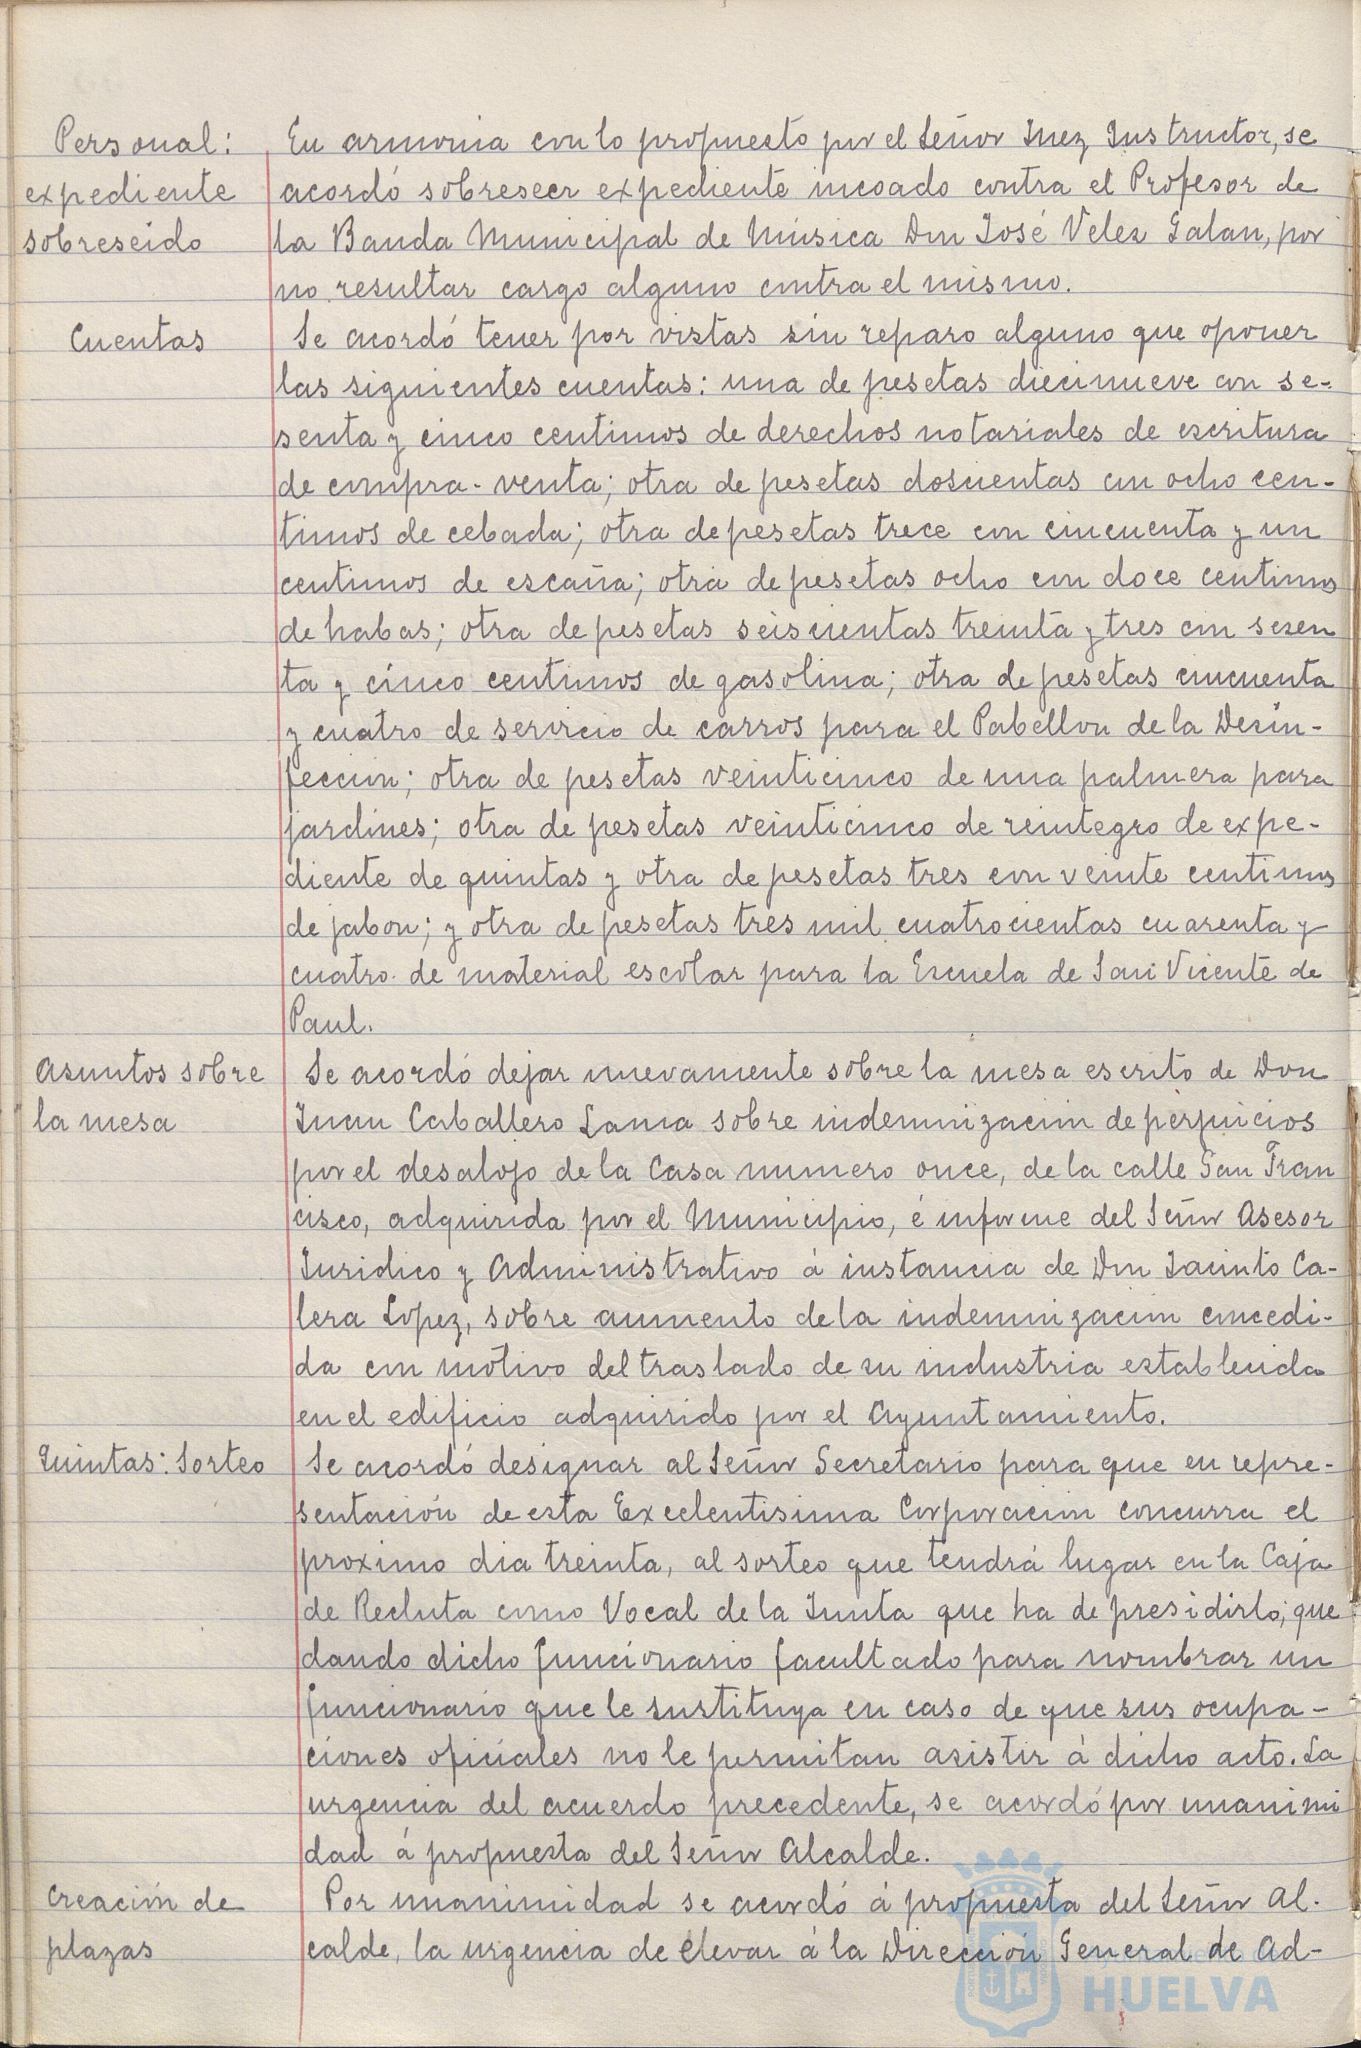 Personal:
expediente
sobreseido
En armonia con lo propuesto por el Señor Juez Instructor, se
acordó sobreseer expediente incoado contra el Profesor de
la Banda Municipal de Música Don José Velez Galan, por
no resultar cargo alguno contra el mismo.
Cuentas
Se acordó tener por vistas sin reparo alguno que oponer
las siguientes cuentas: una de pesetas diecinueve con se-
senta y cinco centimos de derechos notariales de escritura
de compra-venta; otra de pesetas doscientas con ocho cen-
timos de cebada; otra de pesetas trece con cincuenta y un
centimos de escaña; otra de pesetas ocho con doce centimos
de habas; otra de pesetas seiscientas treinta y tres con sesen
ta y cinco centimos de gasolina; otra de pesetas cincuenta
y cuatro de servicio de carros para el Pabellon de la Desin-
feccion; otra de pesetas veinticinco de una palmera para
jardines; otra de pesetas veinticinco de reintegro de expe-
diente de quintas y otra de pesetas tres con veinte centimos
de jabon; y otra de pesetas tres mil cuatrocientas cuarenta y
cuatro de material escolar para la Escuela de San Vicente de
Paul.
Asuntos sobre
la mesa
Se acordó dejar nuevamente sobre la mesa escrito de Don
Juan Caballero Lama sobre indemnizacion de perjuicios
por el desalojo de la Casa numero once, de la calle San Fran
cisco, adquirida por el Municipio, é informe del Señor Asesor
Juridico y Administrativo á instancia de Don Jacinto Ca-
lera Lopez, sobre aumento de la indemnizacion concedi-
da con motivo del traslado de su industria establecida
en el edificio adquirido por el Ayuntamiento.
Quintas: Sorteo
Se acordó designar al Señor Secretario para que en repre-
sentación de esta Excelentisima Corporacion concurra el
proximo dia treinta, al sorteo que tendrá lugar en la Caja
de Recluta como Vocal de la Junta que ha de presidirlo; que
dando dicho funcionario facultado para nombrar un
funcionario que le sustituya en caso de que sus ocupa-
ciones oficiales no le permitan asistir á dicho acto. La
urgencia del acuerdo precedente, se acordó por unanimi
dad á propuesta del Señor Alcalde.
Creación de
plazas
Por unanimidad se acordó á propuesta del Señor Al-
calde, la urgencia de elevar á la Dirección General de Ad-
HUELVA